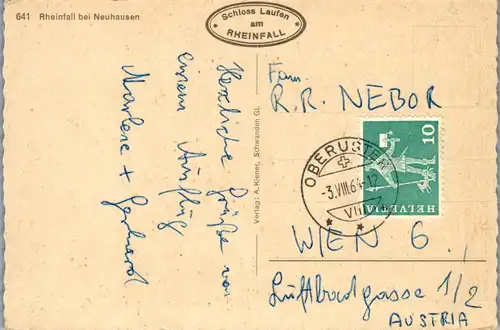 641 Rheinfall bei Neuhausen
Schloss Laufen
am
RHEINFALL
Herzliche Grüße von
einem Ausflug
Marlene + Gerhard
Verlag: A. Kiener, Schwanden GL
Fam.
R.R. NEBOR
OBERUSTER
-3.VIII.64-12
VII
10
HELVETIA
WIEN 6,
Luftbadgasse 1/2
AUSTRIA